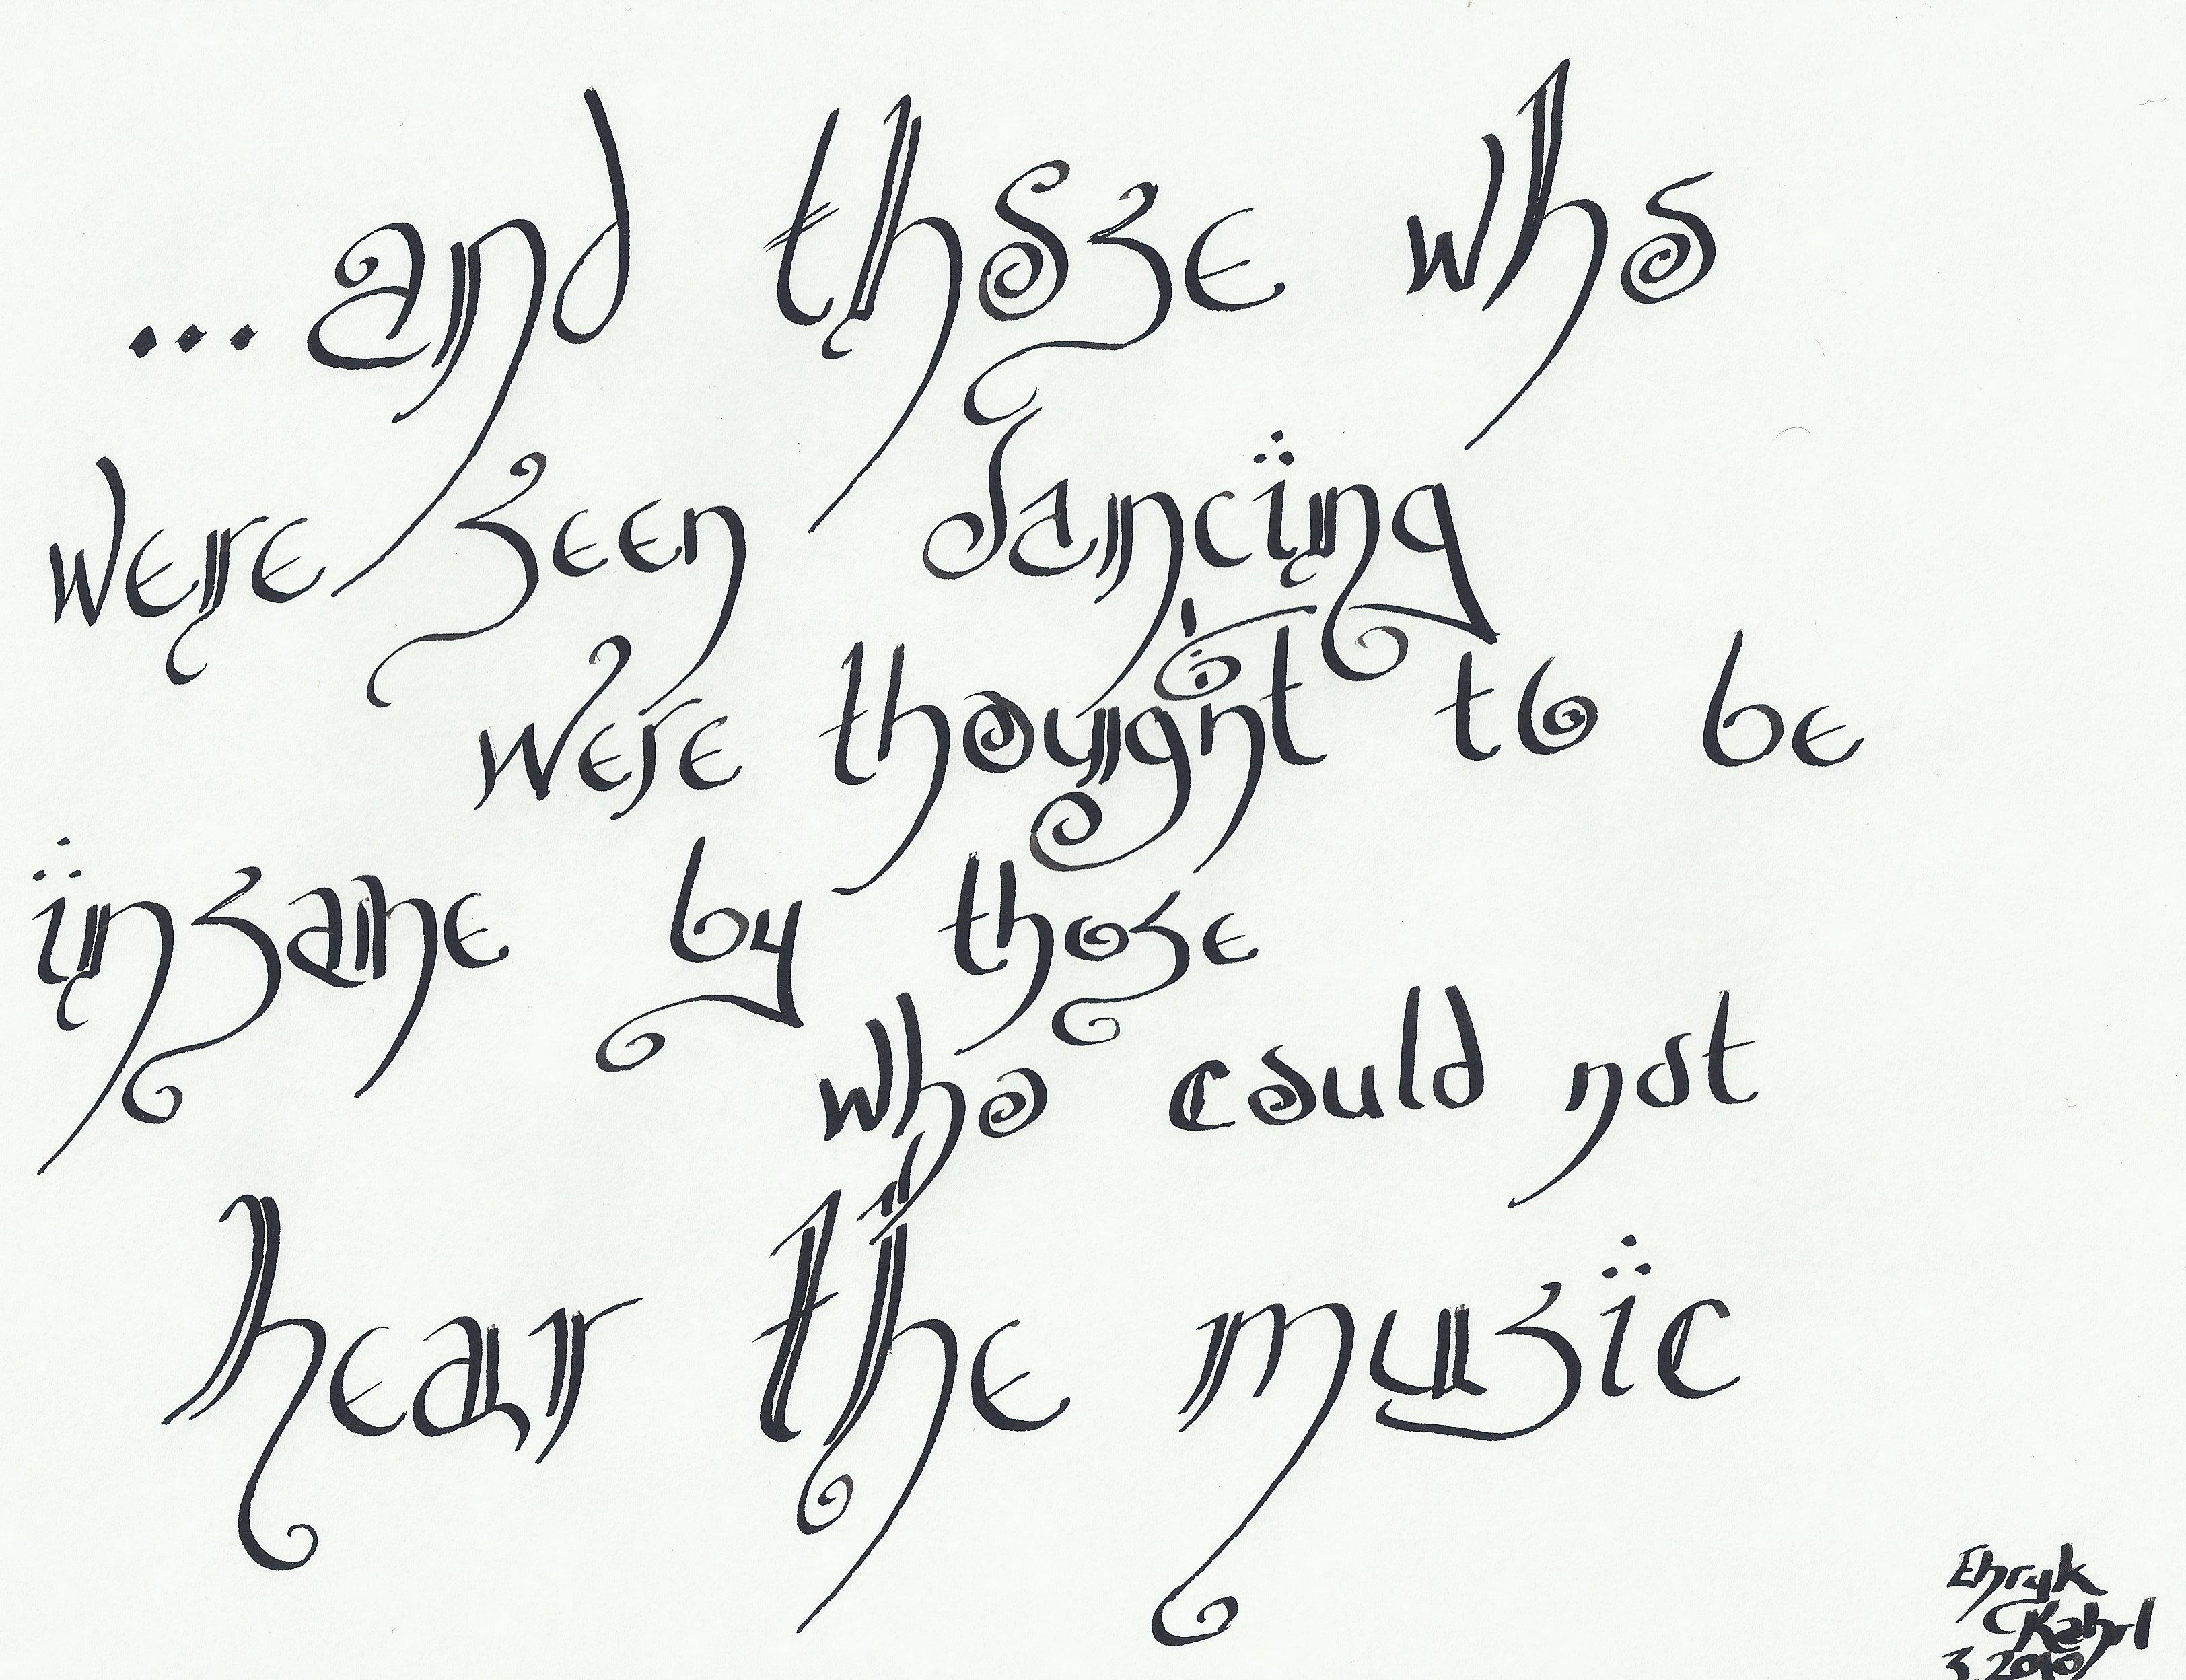 ...and those who
were seen dancing
were thought to be
insane by those
who could not
hear the music
Ehryk
Kahrl
3.2010